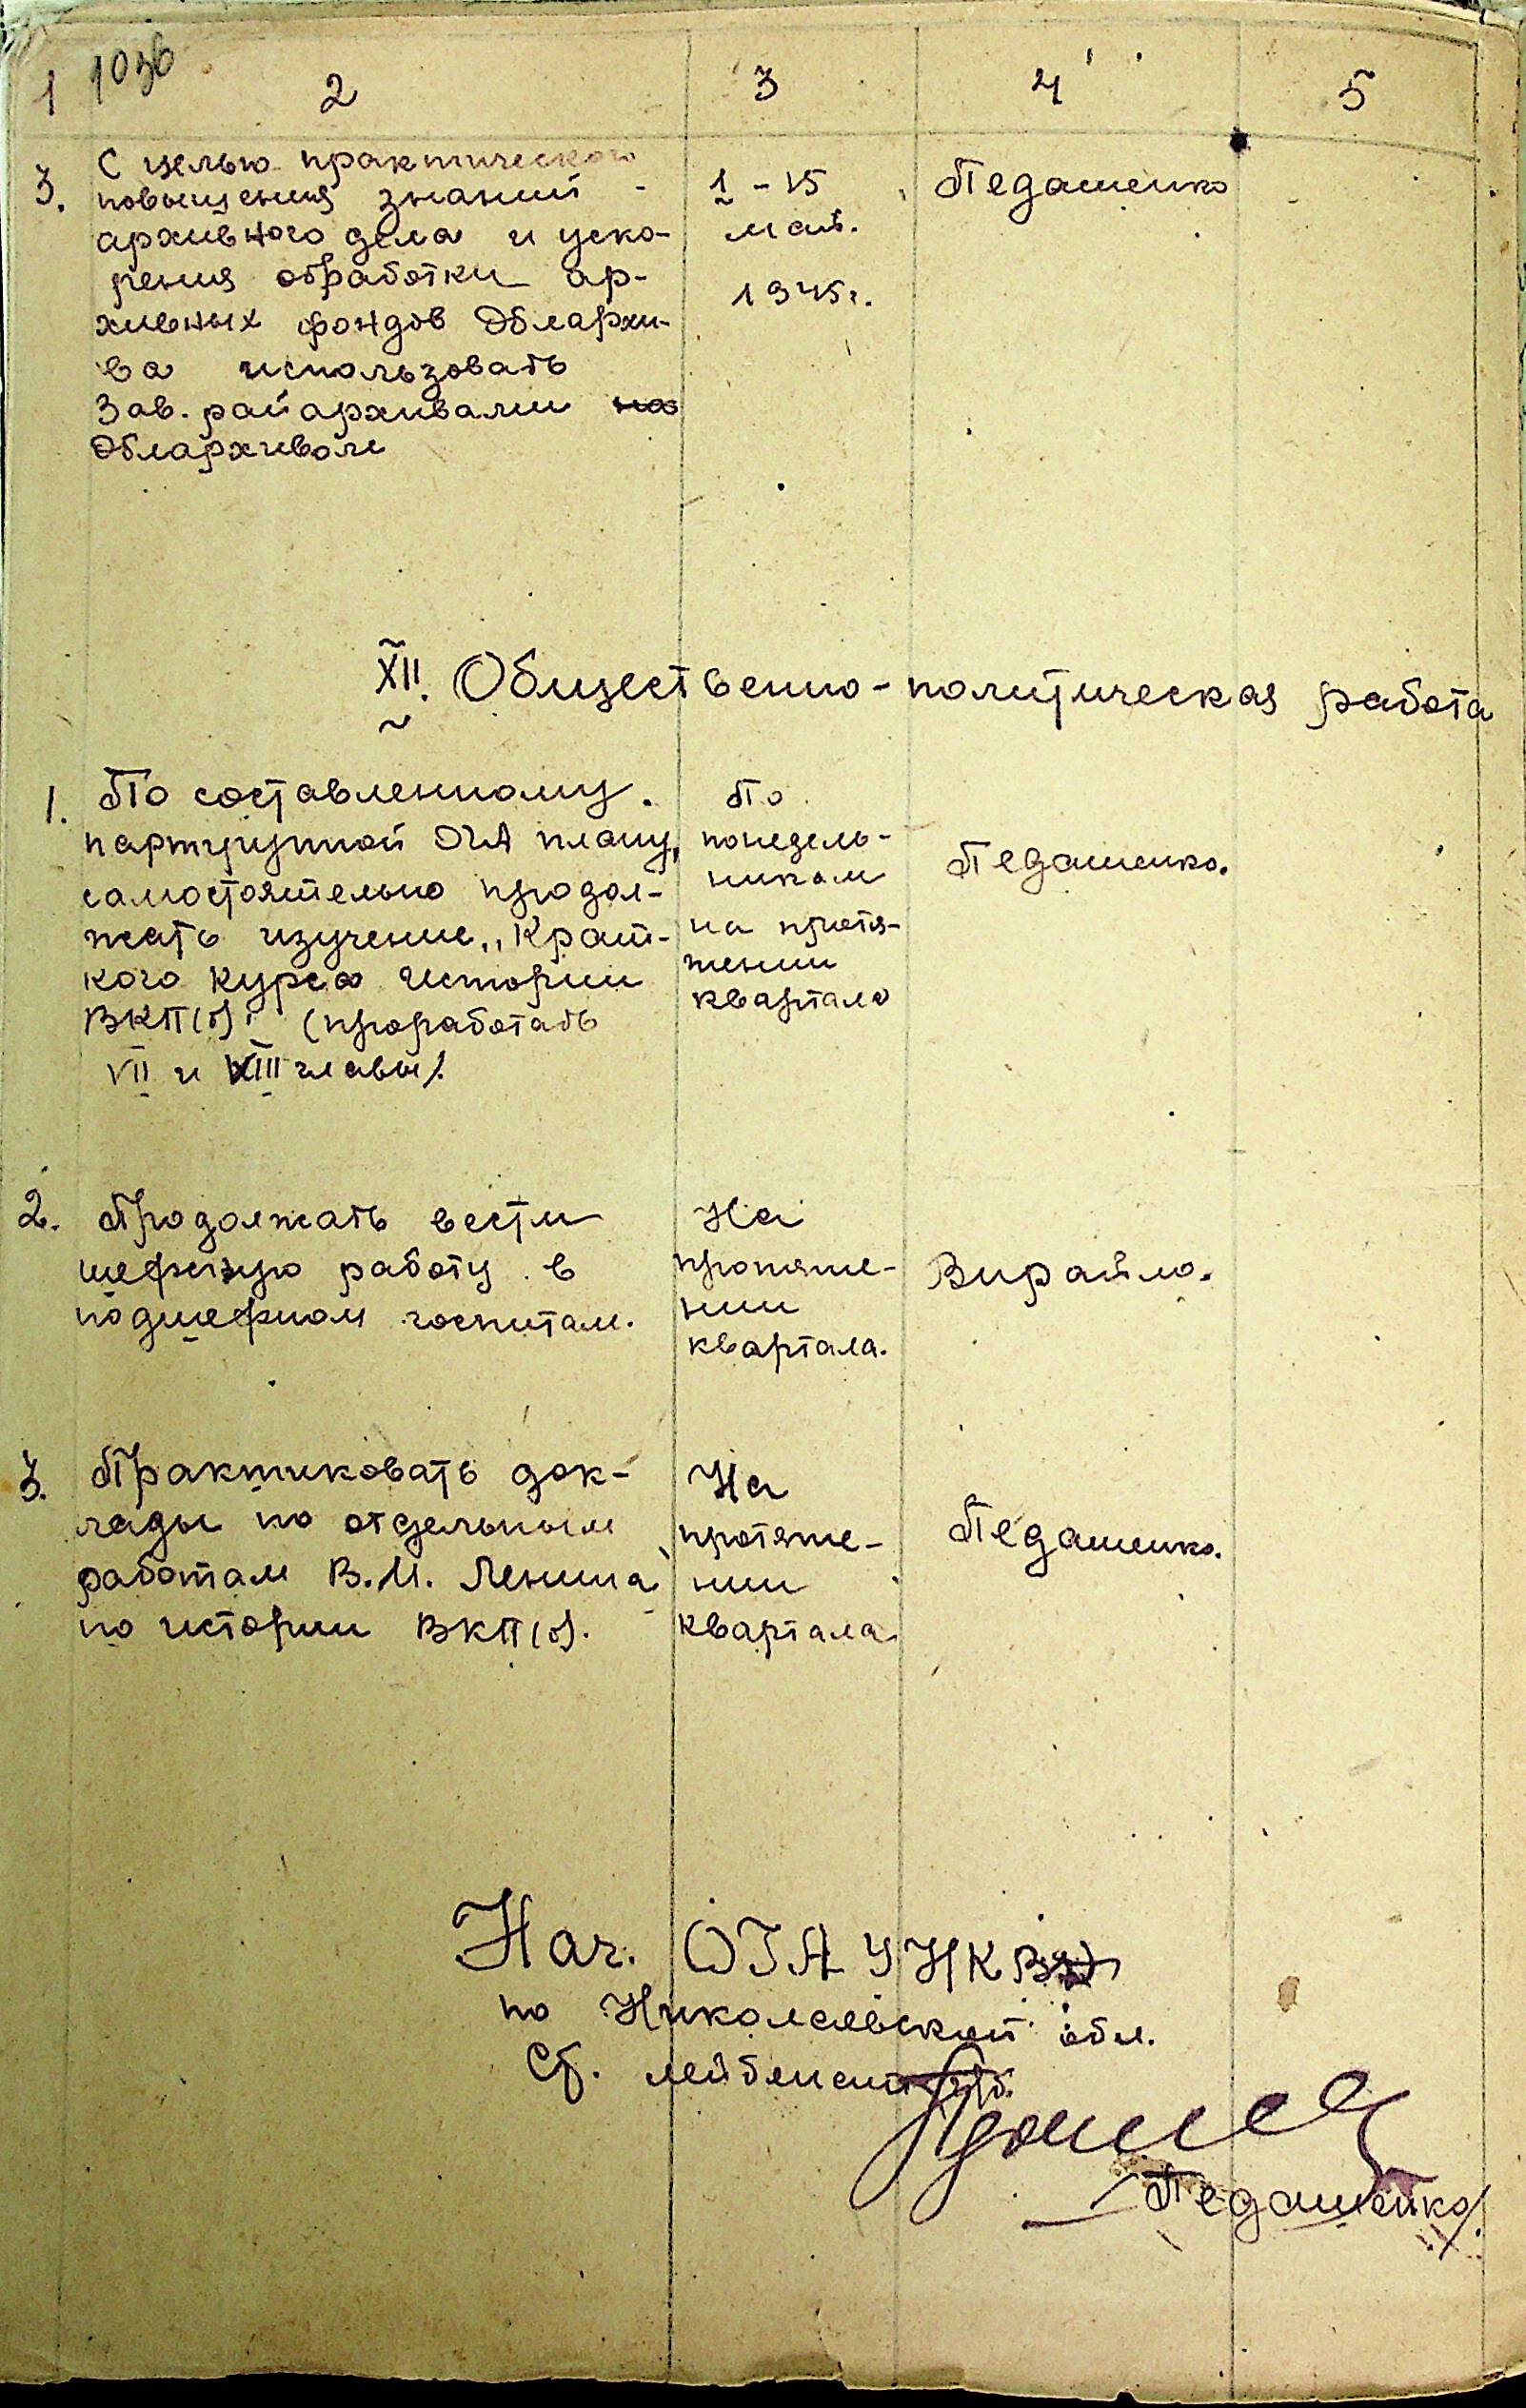 1 103б 2 3 4 5
3. С целью практического
повышения знаний
архивного дела и уско-
рения обработки ар-
хивных фондов Облархи-
ва использовать
Зав. райархивами на
Облархивом
1 - 15
мая.
1945г.
Педашенко
XII. Общественно-политическая работа
1. По составленному
партгруппой ОГА плану,
самостоятельно продол-
жать изучение „Крат-
кого курса истории
ВКП(б)" (проработать
VII и VIII главы).
По
понедель-
никам
на протя-
жении
квартала
Педашенко.
2. Продолжать вести
шефскую работу в
подшефном госпитале.
На
протяже-
нии
квартала.
Вирайло.
3. Практиковать док-
лады по отдельным
работам В.И. Ленина
по истории ВКП(б).
На
протяже-
нии
квартала.
Педашенко.
Нач. ОГА УНКВД
по Николаевской обл.
Ст. лейтенант г/б.
/Педашенко/.